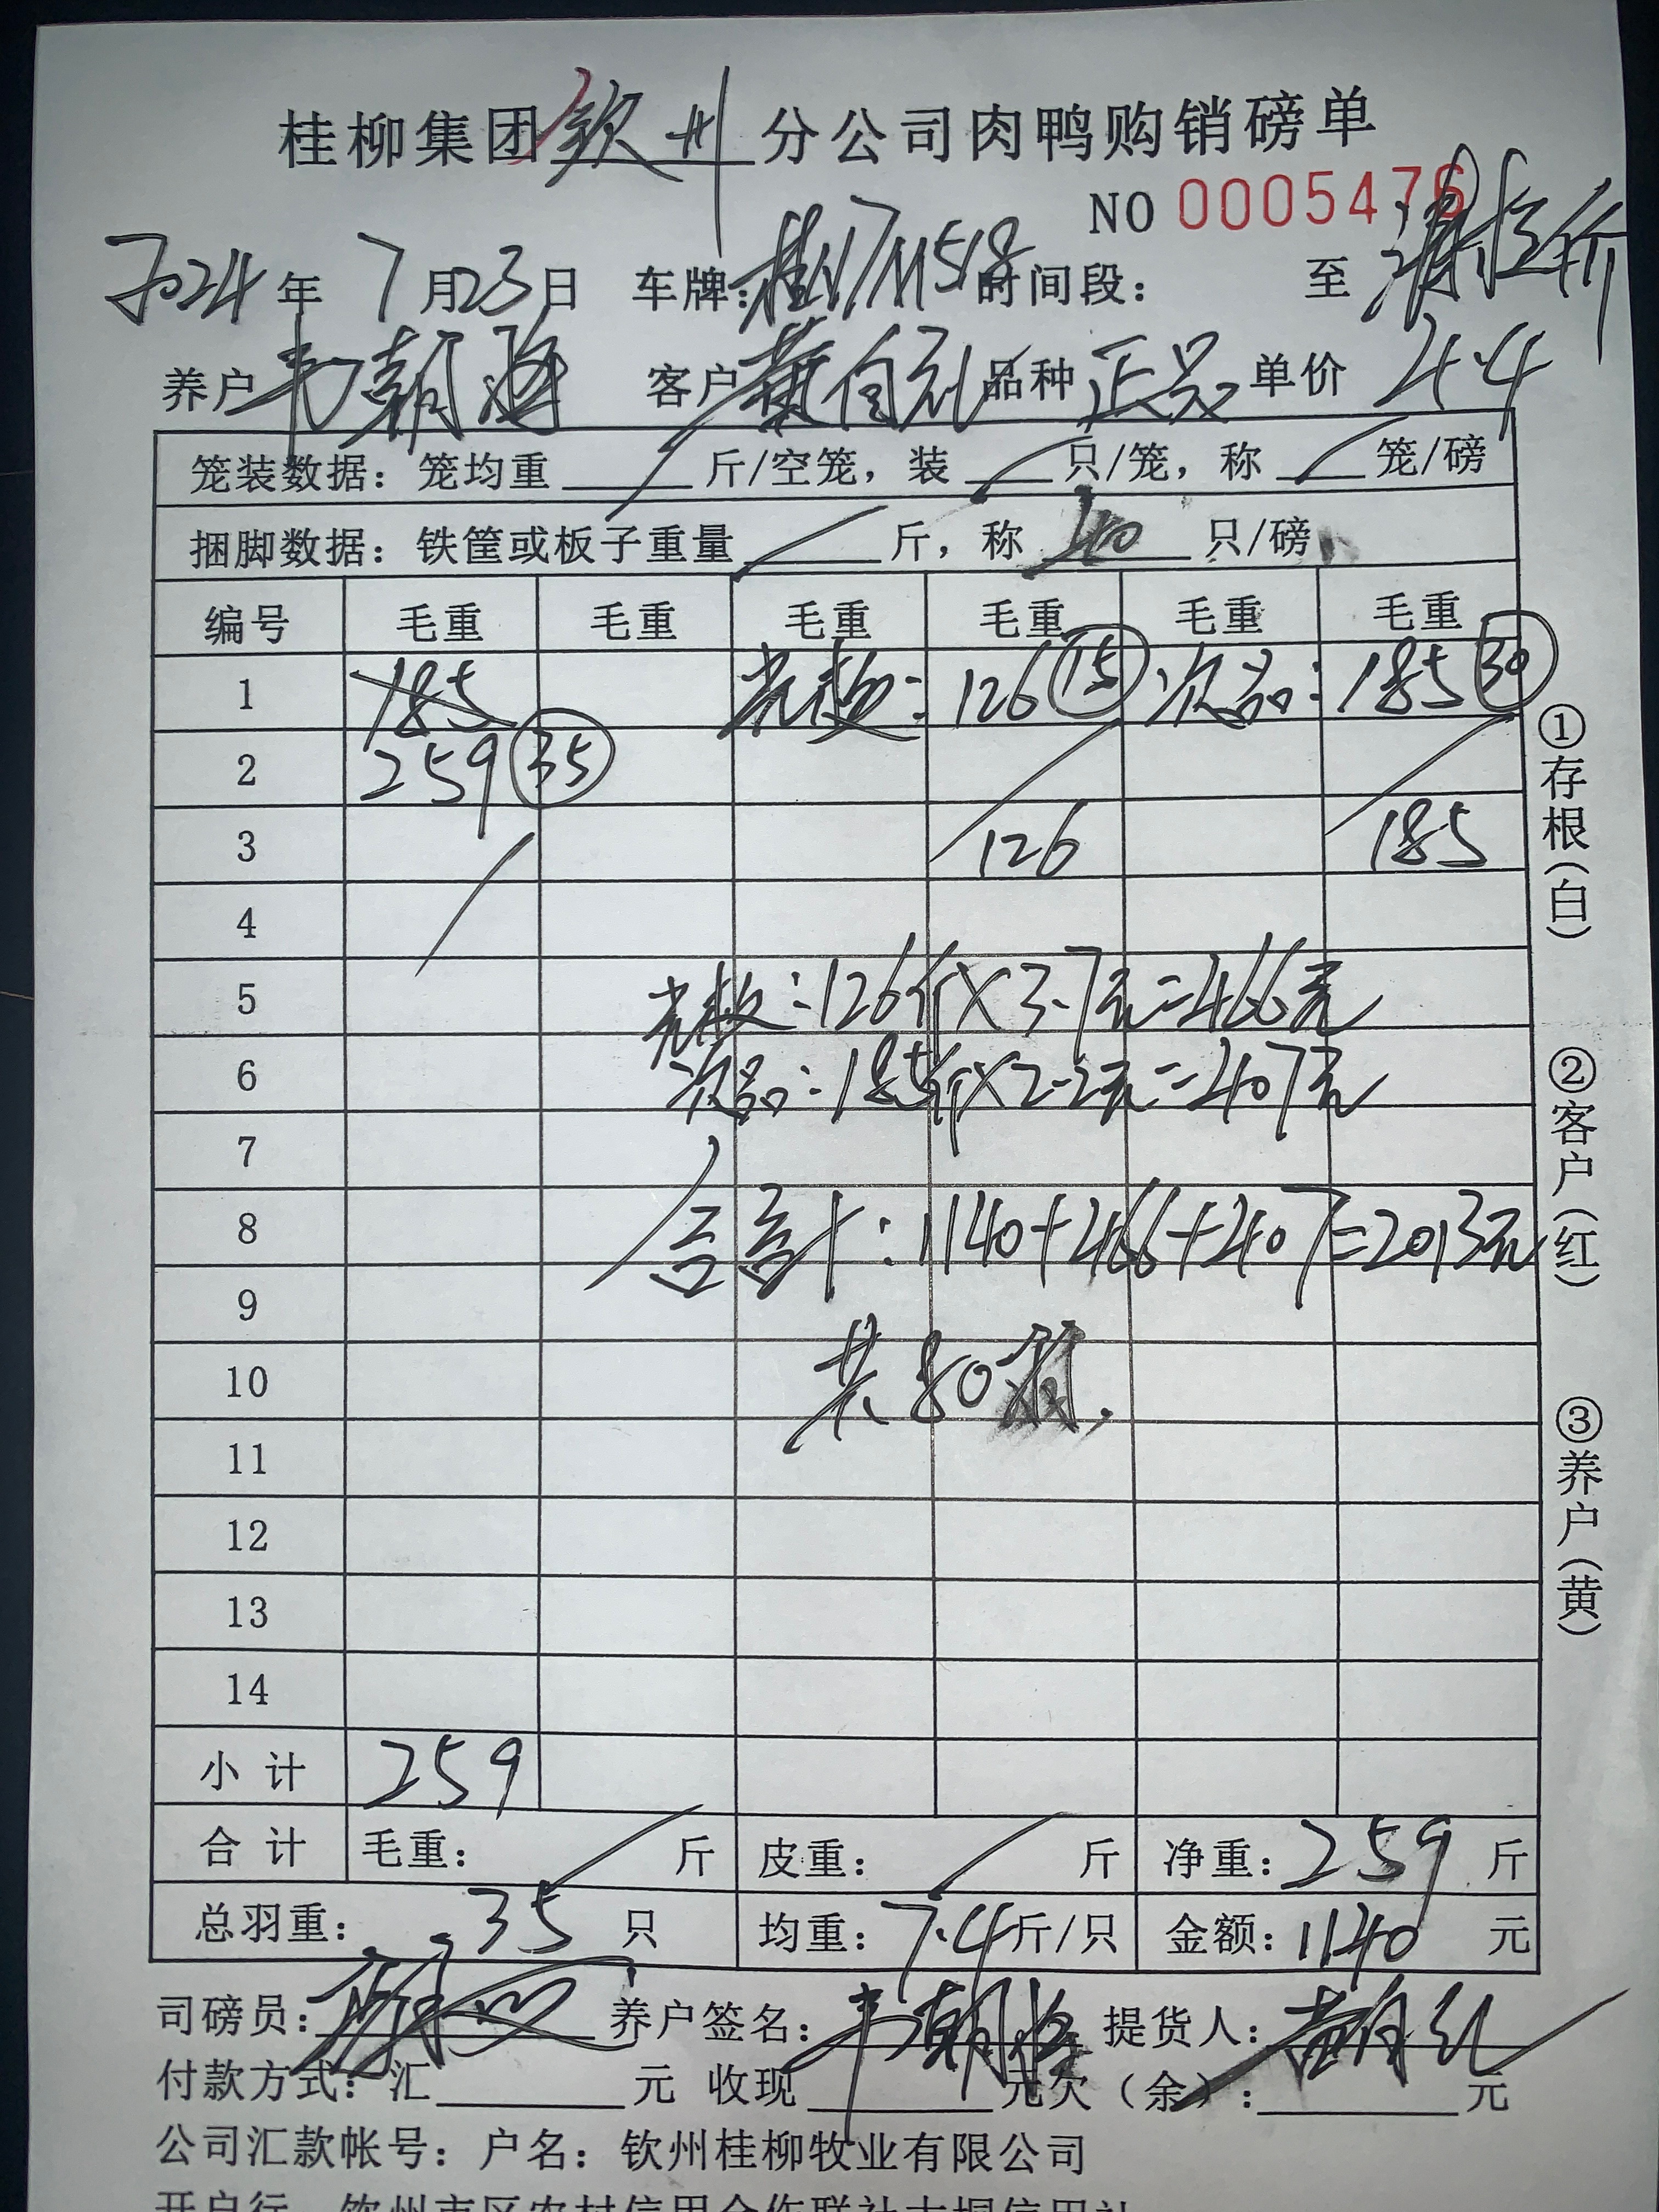 桂柳集团钦州分公司肉鸭购销磅单
NO 0005476
2024年7月23日 车牌：桂N7M518 时间段： 至
养户韦朝 客户黄 品种正只单价4.4
笼装数据：笼均重 斤/空笼，装 只/笼，称 笼/磅
捆脚数据：铁筐或板子重量 斤，称 只/磅
编号 毛重 毛重 毛重 毛重 毛重 毛重
1 185 126 15 次品：185 30
2 259 35
3 126 185
4
5 ：126斤×3.7元=466元
6 次品：185斤×2.2元=407元
7
8 合计：1140+466+407=2013元
9
10 共80
11
12
13
14
小计 259
合计 毛重： 斤 皮重： 斤 净重：259斤
总羽重：35只 均重：7.4斤/只 金额：1140元
司磅员： 养户签名：韦朝 提货人：
付款方式：汇 元 收现 元欠（余）： 元
公司汇款帐号：户名：钦州桂柳牧业有限公司
①存根（白）
②客户（红）
③养户（黄）